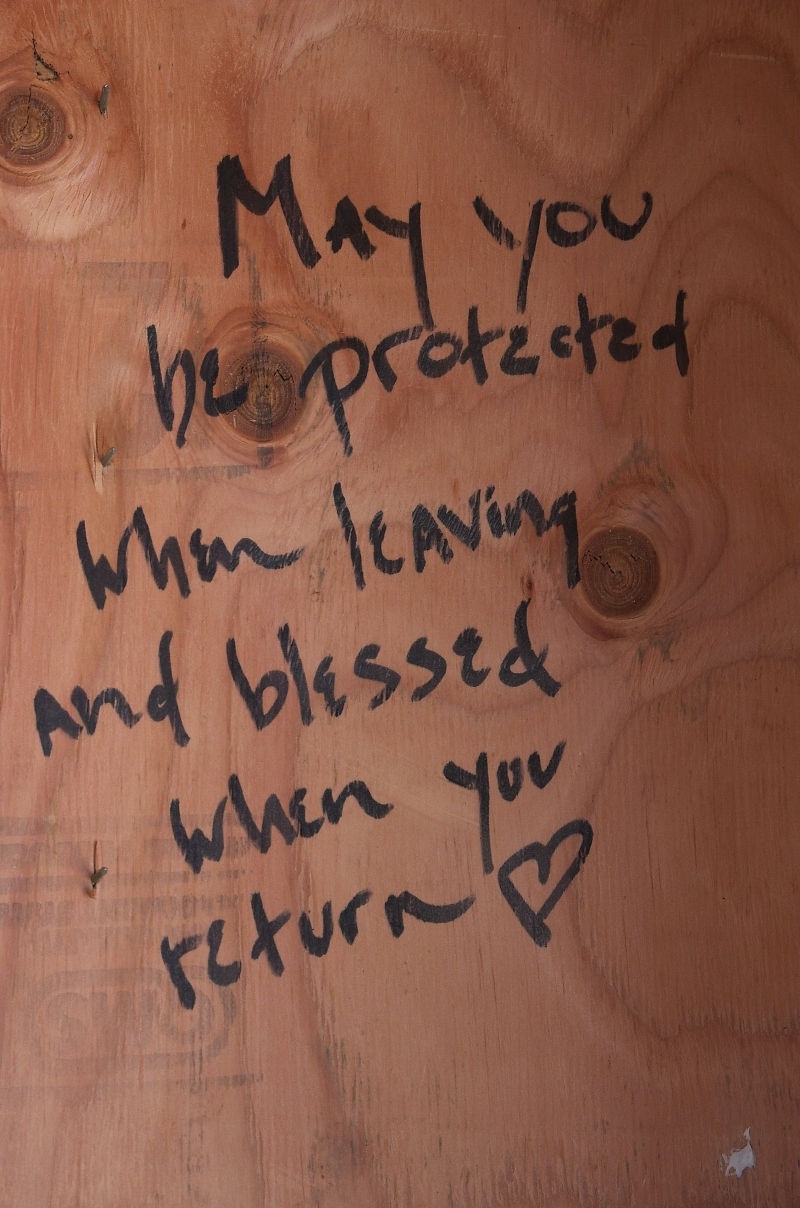 May you
be protected
when leaving
and blessed
when you
return ♡